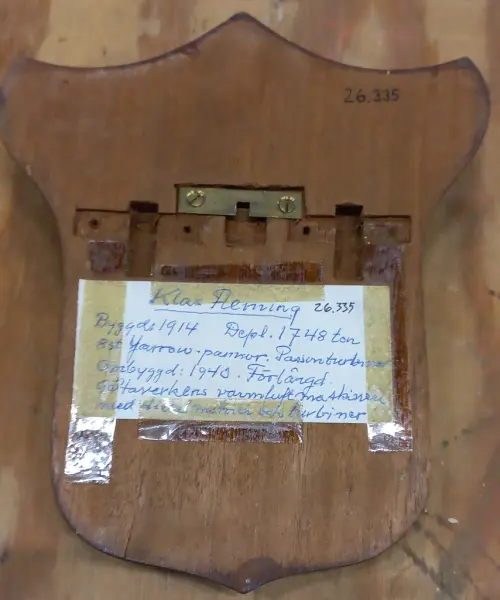 26.335
Klas Fleming 26.335
Byggds 1914 Depl. 1748 ton
Yarrow-pannor. Parsonturbiner
Ombyggd: 1940. Förlängd.
Götaverkens varmluftmaskineri
med motorer och turbiner